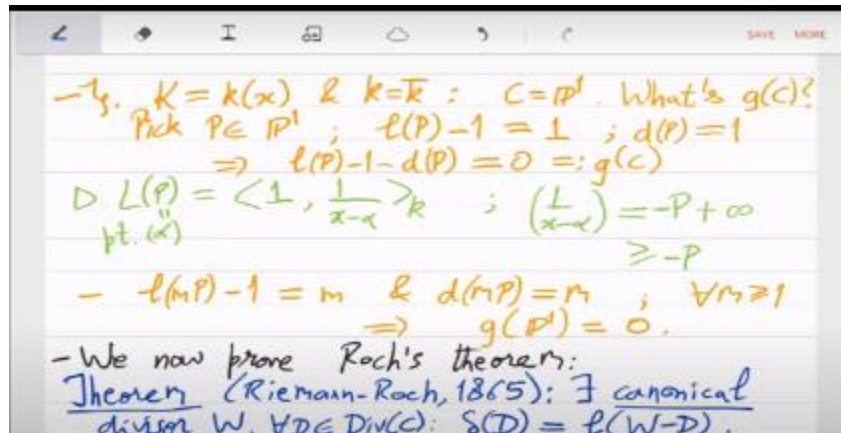 SAVE MORE
- eg. K = k(x) & k=k̄ : C=ℙ¹. What's g(C)?
Pick P∈ ℙ¹ ; ℓ(P)-1 = 1 ; d(P)=1
⇒ ℓ(P)-1-d(P) = 0 =: g(C)
▷ L(P) = <1, 1/(x-α)>_k ; (1/(x-α)) = -P+∞
pt. (α) ≥ -P
- ℓ(mP)-1 = m & d(mP)=m ; ∀m≥1
⇒ g(ℙ¹) = 0.
- We now prove Roch's theorem:
Theorem (Riemann-Roch, 1865): ∃ canonical
divisor W, ∀D∈Div(C): δ(D) = ℓ(W-D).